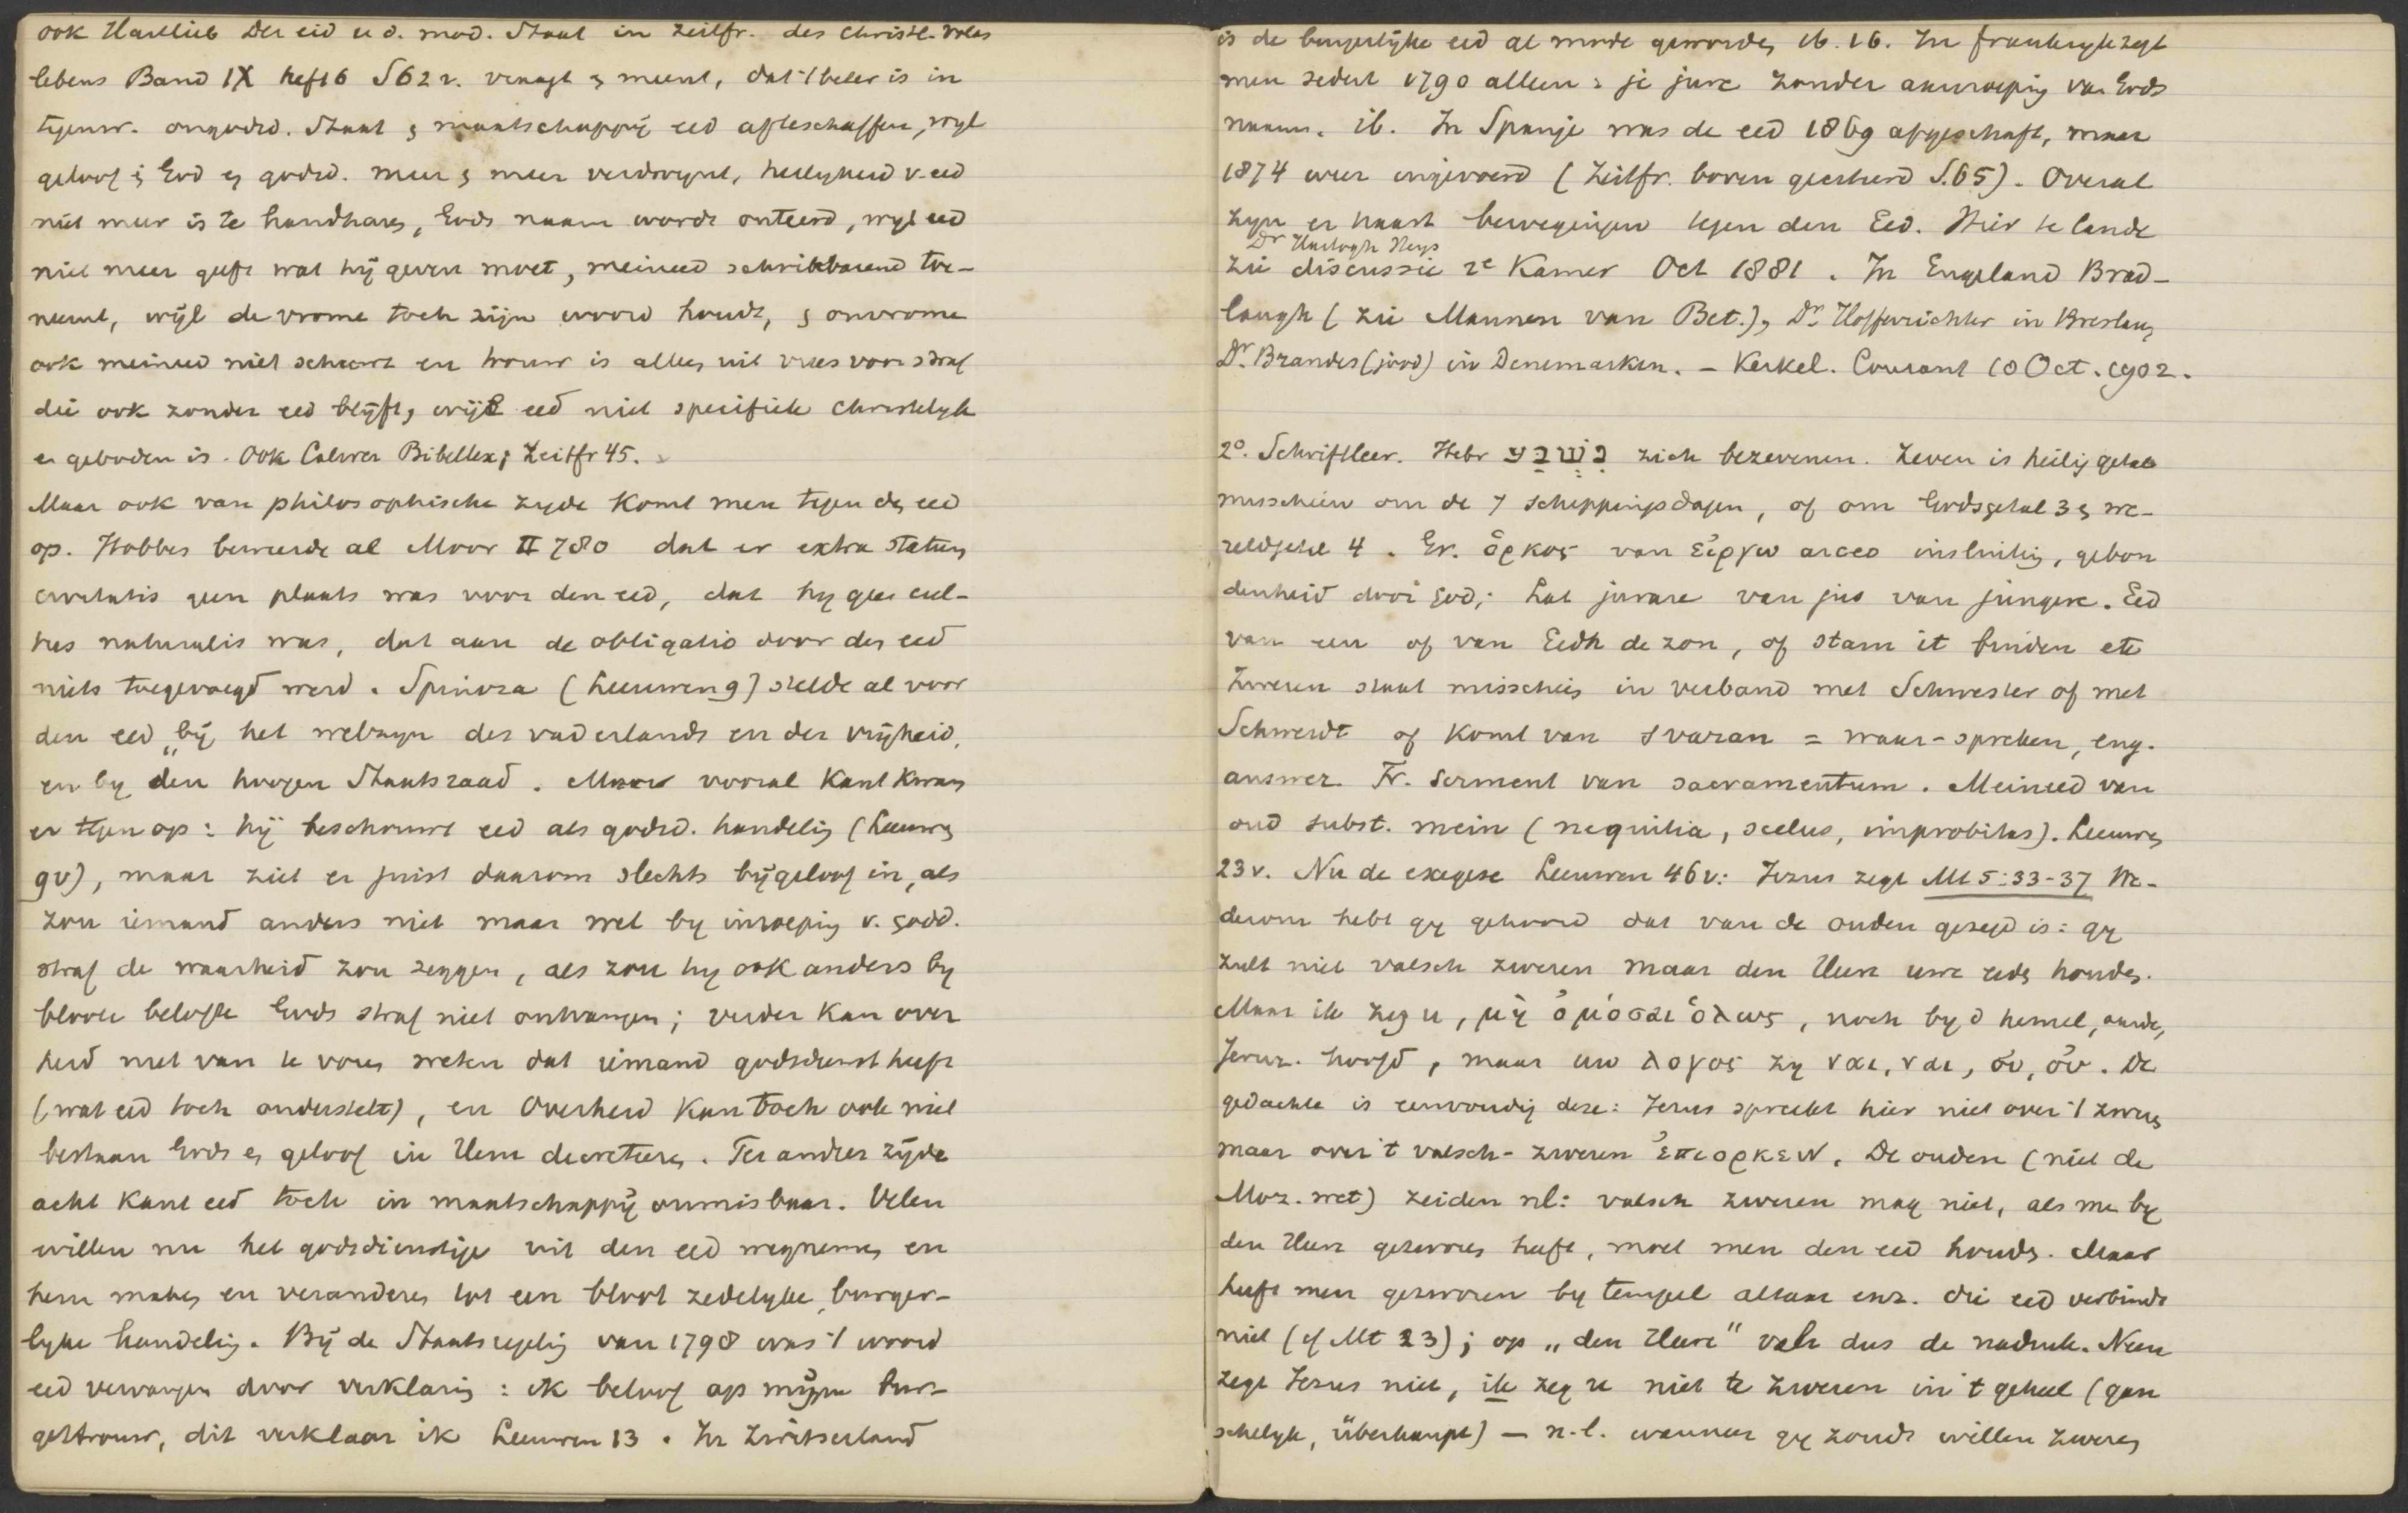 ook Hartlieb Der eid u d. mod. Staat in Zeitfr. des christl. Volks
lebens Band IX heft 6 S 62 v. vraagt en meent, dat 't beter is in
tegenw. ongodsd. Staat en maatschappij eed afteschaffen, wyl
geloof in God en godsd. meer en meer verdwynt, heiligheid v. eed
niet meer is te handhaven, Gods naam wordt onteerd, wyl eed
niet meer geeft wat hij geven moet, meineed schrikbarend toe-
neemt, wijl de vrome toch zijn woord houdt, en onvrome
ook meineed niet schuwt en trouw is alleen uit vrees voor straf
die ook zonder eed blijft, wijl eed niet specifiek christelyk
en geboden is. Ook Calwer Bibellex; Zeitfr 45.
Maar ook van philosophische zyde komt men tegen den eed
op. Hobbes beweerde al Moor II 780 dat er extra statum
civitatis geen plaats was voor den eed, dat hy geen cul-
tus naturalis was, dat aan de obligatio door den eed
niets toegevoegd werd. Spinoza (Leeuwen 9) stelde al voor
den eed „bij het welzyn des vaderlands en der vrijheid,
en by den hoogen Staatsraad. Maar vooral Kant kwam
er tegen op: hij beschouwt eed als godsd. handeling (Leeuwen
9v), maar ziet er juist daarom slechts bijgeloof in, als
zou iemand anders niet maar wel by inroeping v. godd.
straf de waarheid zou zeggen, als zou hy ook anders by
bloote belofte Gods straf niet ontvangen; verder kan over
heid niet van te voren weten dat iemand godsdienst heeft
(wat eed toch onderstelt), en Overheid kan toch ook niet
bestaan Gods en geloof in Hem decreteeren. Ter andere zijde
acht Kant eed toch in maatschappij onmisbaar. Velen
willen nu het godsdienstige uit den eed wegnemen en
hem maken en veranderen tot een bloot zedelyke, burger-
lyke handeling. Bij de Staatsregeling van 1798 was 't woord
eed vervangen door verklaring: ik beloof op mijne bur-
gertrouw, dit verklaar ik Leeuwen 13. In Zwitserland
is de burgerlijke eed al mode geworden ib. 16. In frankryk zegt
men sedert 1790 alleen: je jure zonder aanroeping van Gods
naam. ib. In Spanje was de eed 1869 afgeschaft, maar
1874 weer ingevoerd (Zeitfr. boven geciteerd S. 65). Overal
zyn er haast bewegingen tegen den Eed. Hier te lande
Dr Hartogh Heys
zie discussie 2e Kamer Oct 1881. In Engeland Brad-
laugh (zie Mannen van Bet.), Dr. Hofferichter in Breslau,
Dr. Brandes (jood) in Denemarken. – Kerkel. Courant 10 Oct. 1902.
2°. Schriftleer. Hebr נִשְׁבַּע zich bezevenen. Zeven is heilig getal
misschien om de 7 scheppingsdagen, of om Godsgetal 3 en we-
reldgetal 4. Gr. ὅρκος van εἴργω arceo insluiting, gebon
denheid door God; Lat jurare van jus van jungere. Eed
van een of van Eedh de zon, of stam it binden etc
Zweren staat misschien in verband met Schwester of met
Schwerdt of komt van svaran = waar-spreken, eng.
answer. Fr. Serment van sacramentum. Meineed van
oud subst. mein (nequitia, scelus, improbitas). Leeuwen
23 v. Nu de exegese Leeuwen 46 v: Jezus zegt Mt 5:33-37 We-
derom hebt gy gehoord dat van de ouden gezegd is: gy
zult niet valsch zweren maar den Heere uwe eeden houden.
Maar ik zeg u, μὴ ὀμόσαι ὅλως, noch by d hemel, aarde,
Jeruz. hoofd, maar uw λογος zy ναι, ναι, οὐ, οὐ. De
gedachte is eenvoudig deze: Jezus spreekt hier niet over 't zweren
maar over 't valsch-zweren ἐπιορκειν. De ouden (niet de
Moz. wet) zeiden nl: valsch zweren mag niet, als men by
den Heere gezworen heeft, moet men den eed houden. Maar
heeft men gezworen by tempel altaar enz. die eed verbindt
niet (cf Mt 23); op „den Heere" valt dus de nadruk. Neen
zegt Jezus niet, ik zeg u niet te zweren in 't geheel (gan
schelyk, überhaupt) — n.l. wanneer gy zoudt willen zweren